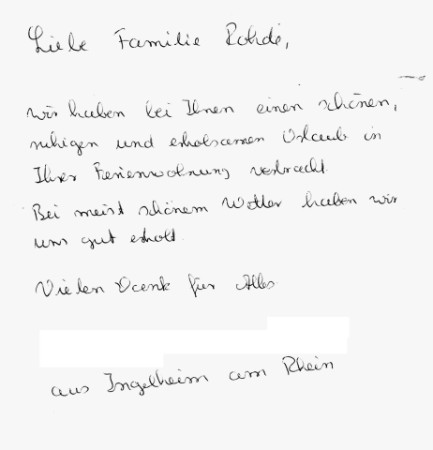 Liebe Familie Rohde,
wir haben bei Ihnen einen schönen,
ruhigen und erholsamen Urlaub in
Ihrer Ferienwohnung verbracht.
Bei meist schönem Wetter haben wir
uns gut erholt.
Vielen Dank für Alles
aus Ingelheim am Rhein